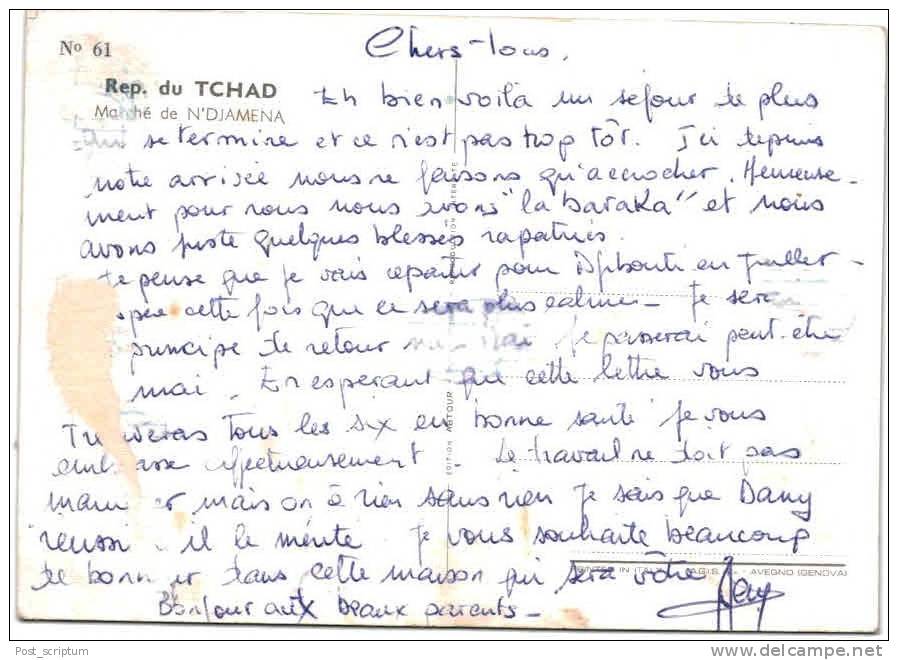 No 61
Chers-tous,
Rep. du TCHAD
Marché de N'DJAMENA
Eh bien voilà un séjour de plus
qui se termine et ce n'est pas trop tôt. Ici depuis
notre arrivée nous ne faisons qu'accrocher. Heureuse-
ment pour nous nous avons "la baraka" et nous
avons juste quelques blessés rapatriés.
Je pense que je vais repartir pour Djibouti en Juillet -
cette fois que ce sera plus calme - Je serai
principe de retour mai Je passerai peut-être
mai. En espérant que cette lettre vous
trouveras tous les six en bonne santé je vous
embrasse affectueusement. Le travail ne doit pas
manquer mais on à rien sans rien je sais que Dany
reussi il le mérite. Je vous souhaite beaucoup
de bonheur dans cette maison qui sera vôtre
Bonjour aux beaux parents -
REPRODUCTION INTERDITE
EDITION
PRINTED IN ITALY AVEGNO (GENOVA)
Post_scriptum
www.delcampe.net